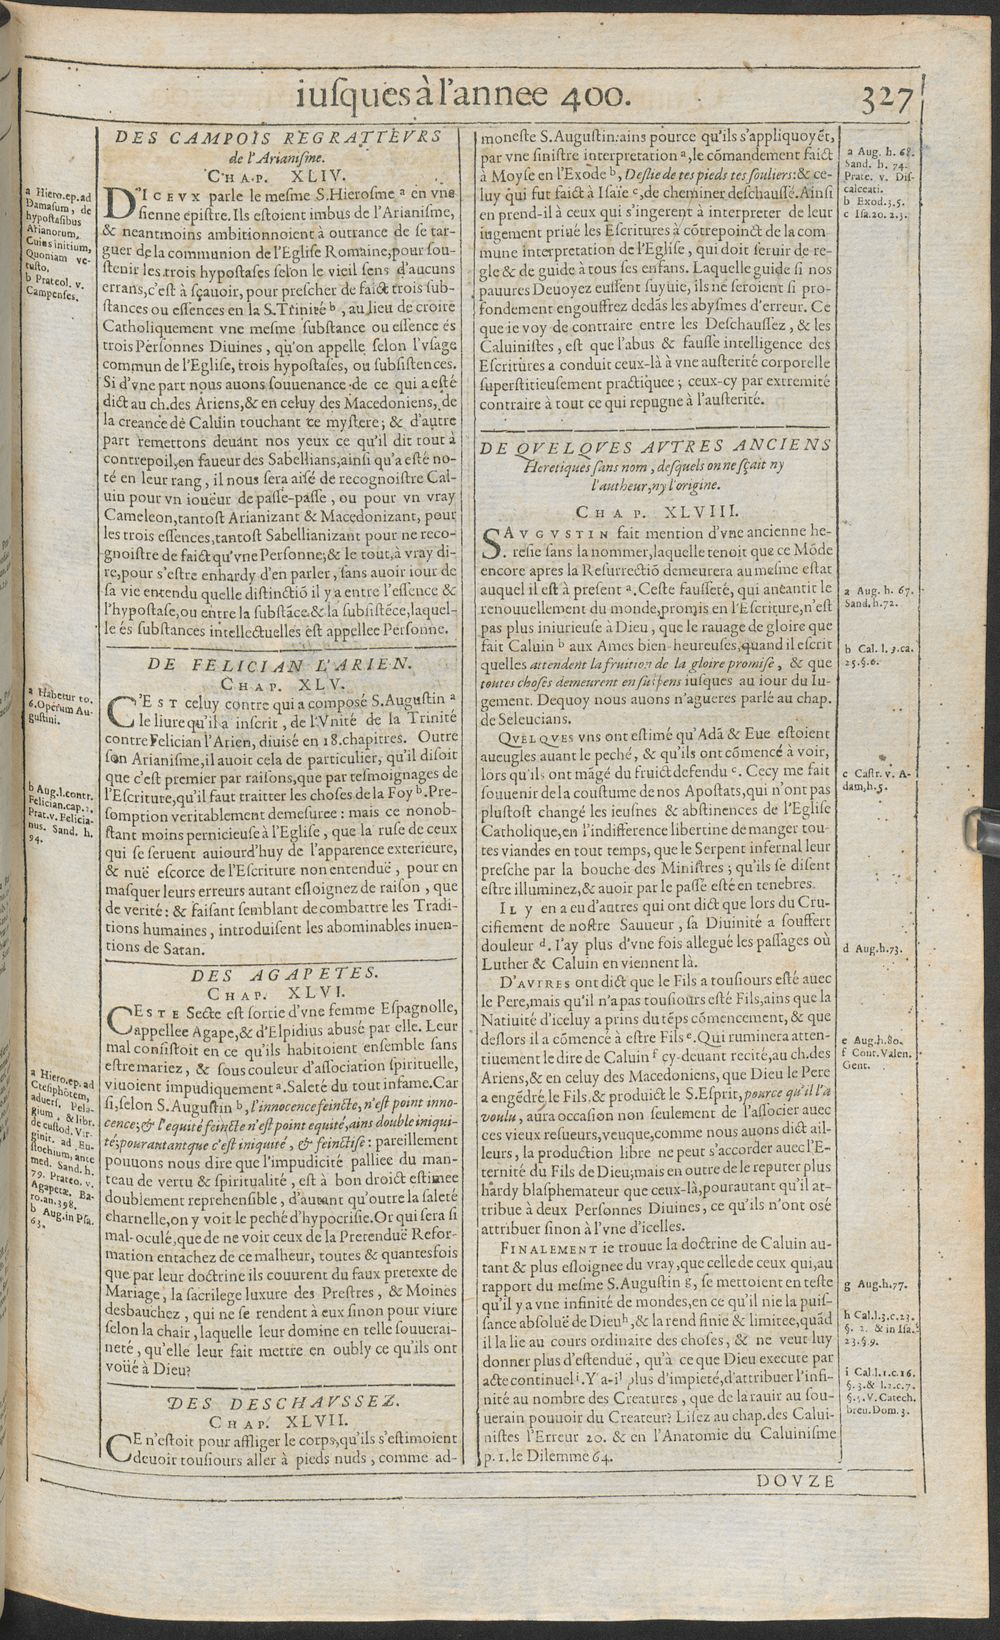 iuſques à l'annee 400.
327
DES CAMPOIS REGRATTEVRS
de l'Arianiſme.
CHAP. XLIV.
a Hiero.ep.ad
Damaſum, de
hypoſtaſibus
Arianorum,
Cuius initium,
Quoniam ve-
tuſto.
b Prateol. v.
Campenſes.
D'ICEVX parle le meſme S.Hieroſme a en vne
ſienne epiſtre. Ils eſtoient imbus de l'Arianiſme,
& neantmoins ambitionnoient à outrance de ſe tar-
guer de la communion de l'Egliſe Romaine,pour ſou-
ſtenir les trois hypoſtaſes ſelon le vieil ſens d'aucuns
errans,c'eſt à ſçauoir, pour preſcher de faict trois ſub-
ſtances ou eſſences en la S.Trinité b , au lieu de croire
Catholiquement vne meſme ſubſtance ou eſſence és
trois Perſonnes Diuines , qu'on appelle ſelon l'vſage
commun de l'Egliſe, trois hypoſtaſes, ou ſubſiſtences.
Si d'vne part nous auons ſouuenance de ce qui a eſté
dict au ch.des Ariens,& en celuy des Macedoniens, de
la creance de Caluin touchant ce myſtere; & d'autre
part remettons deuant nos yeux ce qu'il dit tout à
contrepoil,en faueur des Sabellians,ainſi qu'a eſté no-
té en leur rang , il nous ſera aiſé de recognoiſtre Cal-
uin pour vn ioüeur de paſſe-paſſe , ou pour vn vray
Cameleon,tantoſt Arianizant & Macedonizant, pour
les trois eſſences,tantoſt Sabellianizant pour ne reco-
gnoiſtre de faict qu'vne Perſonne,& le tout,à vray di-
re,pour s'eſtre enhardy d'en parler, ſans auoir iour de
ſa vie entendu quelle diſtinctiõ il y a entre l'eſſence &
l'hypoſtaſe,ou entre la ſubſtãce,& la ſubſiſtẽce,laquel-
le és ſubſtances intellectuelles eſt appellee Perſonne.
DE FELICIAN L'ARIEN.
CHAP. XLV.
a Habetur to.
6.Operum Au-
guſtini.
b Aug.l.contr.
Felician.cap.2.
Prat.v.Felicia-
nus. Sand. h.
94.
C'EST celuy contre qui a compoſé S.Auguſtin a
le liure qu'il a inſcrit , de l'Vnité de la Trinité
contre Felician l'Arien, diuisé en 18.chapitres. Outre
ſon Arianiſme,il auoit cela de particulier, qu'il diſoit
que c'eſt premier par raiſons,que par teſmoignages de
l'Eſcriture,qu'il faut traitter les choſes de la Foy b.Pre-
ſomption veritablement demeſuree : mais ce nonob-
ſtant moins pernicieuſe à l'Egliſe , que la ruſe de ceux
qui ſe ſeruent auiourd'huy de l'apparence exterieure,
& nuë eſcorce de l'Eſcriture non entenduë , pour en
maſquer leurs erreurs autant eſloignez de raiſon , que
de verité : & faiſant ſemblant de combattre les Tradi-
tions humaines , introduiſent les abominables inuen-
tions de Satan.
DES AGAPETES.
CHAP. XLVI.
a Hiero.ep. ad
Cteſiphõtem,
aduerſ. Pela-
gium , & libr.
de cuſtod. Vir-
ginit. ad Eu-
ſtochium, ante
med. Sand. h.
79. Prateo. v.
Agapetæ. Ba-
ro.an.398.
b Aug.in Pſa.
63.
CESTE Secte eſt ſortie d'vne femme Eſpagnolle,
appellee Agape,& d'Elpidius abusé par elle. Leur
mal conſiſtoit en ce qu'ils habitoient enſemble ſans
eſtre mariez , & ſous couleur d'aſſociation ſpirituelle,
viuoient impudiquement a.Saleté du tout infame.Car
ſi,ſelon S.Auguſtin b , l'innocence feincte, n'eſt point inno-
cence; & l'equité feincte n'eſt point equité, ains double iniqui-
té; pourautant que c'eſt iniquité , & feinctiſe : pareillement
pouuons nous dire que l'impudicité palliee du man-
teau de vertu & ſpiritualité , eſt à bon droict eſtimee
doublement reprehenſible , d'autant qu'outre la ſaleté
charnelle,on y voit le peché d'hypocriſie.Or qui ſera ſi
mal-oculé,que de ne voir ceux de la Pretenduë Refor-
mation entachez de ce malheur, toutes & quanteſfois
que par leur doctrine ils couurent du faux pretexte de
Mariage , la ſacrilege luxure des Preſtres , & Moines
desbauchez , qui ne ſe rendent à eux ſinon pour viure
ſelon la chair , laquelle leur domine en telle ſouuerai-
neté , qu'elle leur fait mettre en oubly ce qu'ils ont
voüé à Dieu?
DES DESCHAVSSEZ.
CHAP. XLVII.
CE n'eſtoit pour affliger le corps,qu'ils s'eſtimoient
deuoir touſiours aller à pieds nuds , comme ad-
moneſte S.Auguſtin:ains pource qu'ils s'appliquoyẽt,
par vne ſiniſtre interpretation a ,le cõmandement faict
à Moyſe en l'Exode b , Deſlie de tes pieds tes ſouliers:& ce-
luy qui fut faict à Iſaïe c ,de cheminer deſchauſſé.Ainſi
en prend-il à ceux qui s'ingerent à interpreter de leur
iugement priué les Eſcritures à cõtrepoinct de la com
mune interpretation de l'Egliſe , qui doit ſeruir de re-
gle & de guide à tous ſes enfans. Laquelle guide ſi nos
pauures Deuoyez euſſent ſuyuie, ils ne ſeroient ſi pro-
fondement engouffrez dedãs les abyſmes d'erreur. Ce
que ie voy de contraire entre les Deſchauſſez , & les
Caluiniſtes , eſt que l'abus & fauſſe intelligence des
Eſcritures a conduit ceux-là à vne auſterité corporelle
ſuperſtitieuſement practiquee ; ceux-cy par extremité
contraire à tout ce qui repugne à l'auſterité.
a Aug. h. 68.
Sand. h. 74.
Prate. v. Diſ-
calceati.
b Exod.3.5.
c Iſa.20. 2.3.
DE QVELQVES AVTRES ANCIENS
Heretiques ſans nom , deſquels on ne ſçait ny
l'autheur,ny l'origine.
CHAP. XLVIII.
S.AVGVSTIN fait mention d'vne ancienne he-
reſie ſans la nommer,laquelle tenoit que ce Mõde
encore apres la Reſurrectiõ demeurera au meſme eſtat
auquel il eſt à preſent a.Ceſte fauſſeté, qui aneantit le
renouuellement du monde,promis en l'Eſcriture,n'eſt
pas plus iniurieuſe à Dieu , que le rauage de gloire que
fait Caluin b aux Ames bien-heureuſes,quand il eſcrit
quelles attendent la fruition de la gloire promiſe , & que
toutes choſes demeurent en ſuſpens iuſques au iour du Iu-
gement. Dequoy nous auons n'agueres parlé au chap.
de Seleucians.
QVELQVES vns ont eſtimé qu'Adã & Eue eſtoient
aueugles auant le peché , & qu'ils ont cõmencé à voir,
lors qu'ils ont mãgé du fruict defendu c. Cecy me fait
ſouuenir de la couſtume de nos Apoſtats,qui n'ont pas
pluſtoſt changé les ieuſnes & abſtinences de l'Egliſe
Catholique,en l'indifference libertine de manger tou-
tes viandes en tout temps, que le Serpent infernal leur
preſche par la bouche des Miniſtres ; qu'ils ſe diſent
eſtre illuminez,& auoir par le paſſé eſté en tenebres.
IL y en a eu d'autres qui ont dict que lors du Cru-
cifiement de noſtre Sauueur , ſa Diuinité a ſouffert
douleur d. I'ay plus d'vne fois allegué les paſſages où
Luther & Caluin en viennent là.
D'AVTRES ont dict que le Fils a touſiours eſté auec
le Pere,mais qu'il n'a pas touſiours eſté Fils,ains que la
Natiuité d'iceluy a prins du tẽps cõmencement, & que
deſlors il a cõmencé à eſtre Fils e.Qui ruminera atten-
tiuement le dire de Caluin f cy-deuant recité,au ch.des
Ariens,& en celuy des Macedoniens, que Dieu le Pere
a engẽdré le Fils,& produict le S.Eſprit,pource qu'il l'a
voulu , aura occaſion non ſeulement de l'aſſocier auec
ces vieux reſueurs,veuque,comme nous auons dict ail-
leurs , la production libre ne peut s'accorder auec l'E-
ternité du Fils de Dieu;mais en outre de le reputer plus
hardy blaſphemateur que ceux-là,pourautant qu'il at-
tribue à deux Perſonnes Diuines, ce qu'ils n'ont osé
attribuer ſinon à l'vne d'icelles.
FINALEMENT ie trouue la doctrine de Caluin au-
tant & plus eſloignee du vray,que celle de ceux qui,au
rapport du meſme S.Auguſtin g, ſe mettoient en teſte
qu'il y a vne infinité de mondes,en ce qu'il nie la puiſ-
ſance abſoluë de Dieu h,& la rend finie & limitee,quãd
il la lie au cours ordinaire des choſes, & ne veut luy
donner plus d'eſtenduë , qu'à ce que Dieu execute par
acte continuel i.Y a-il plus d'impieté,d'attribuer l'infi-
nité au nombre des Creatures , que de la rauir au ſou-
uerain pouuoir du Createur? Liſez au chap.des Calui-
niſtes l'Erreur 20. & en l'Anatomie du Caluiniſme
p. 1. le Dilemme 64.
a Aug. h. 67.
Sand.h.72.
b Cal. l. 3.ca.
25.§.6.
c Caſtr. v. A-
dam,h.5.
d Aug.h.73.
e Aug.h.80.
f Cont.Valen.
Gent.
g Aug.h.77.
h Cal.l.3.c.23.
§. 2. & in Iſa.
23.§.9.
i Cal.l.1.c.16.
§.3.& l.2.c.7.
§.5.V.Catech.
breu.Dom.3.
DOVZE